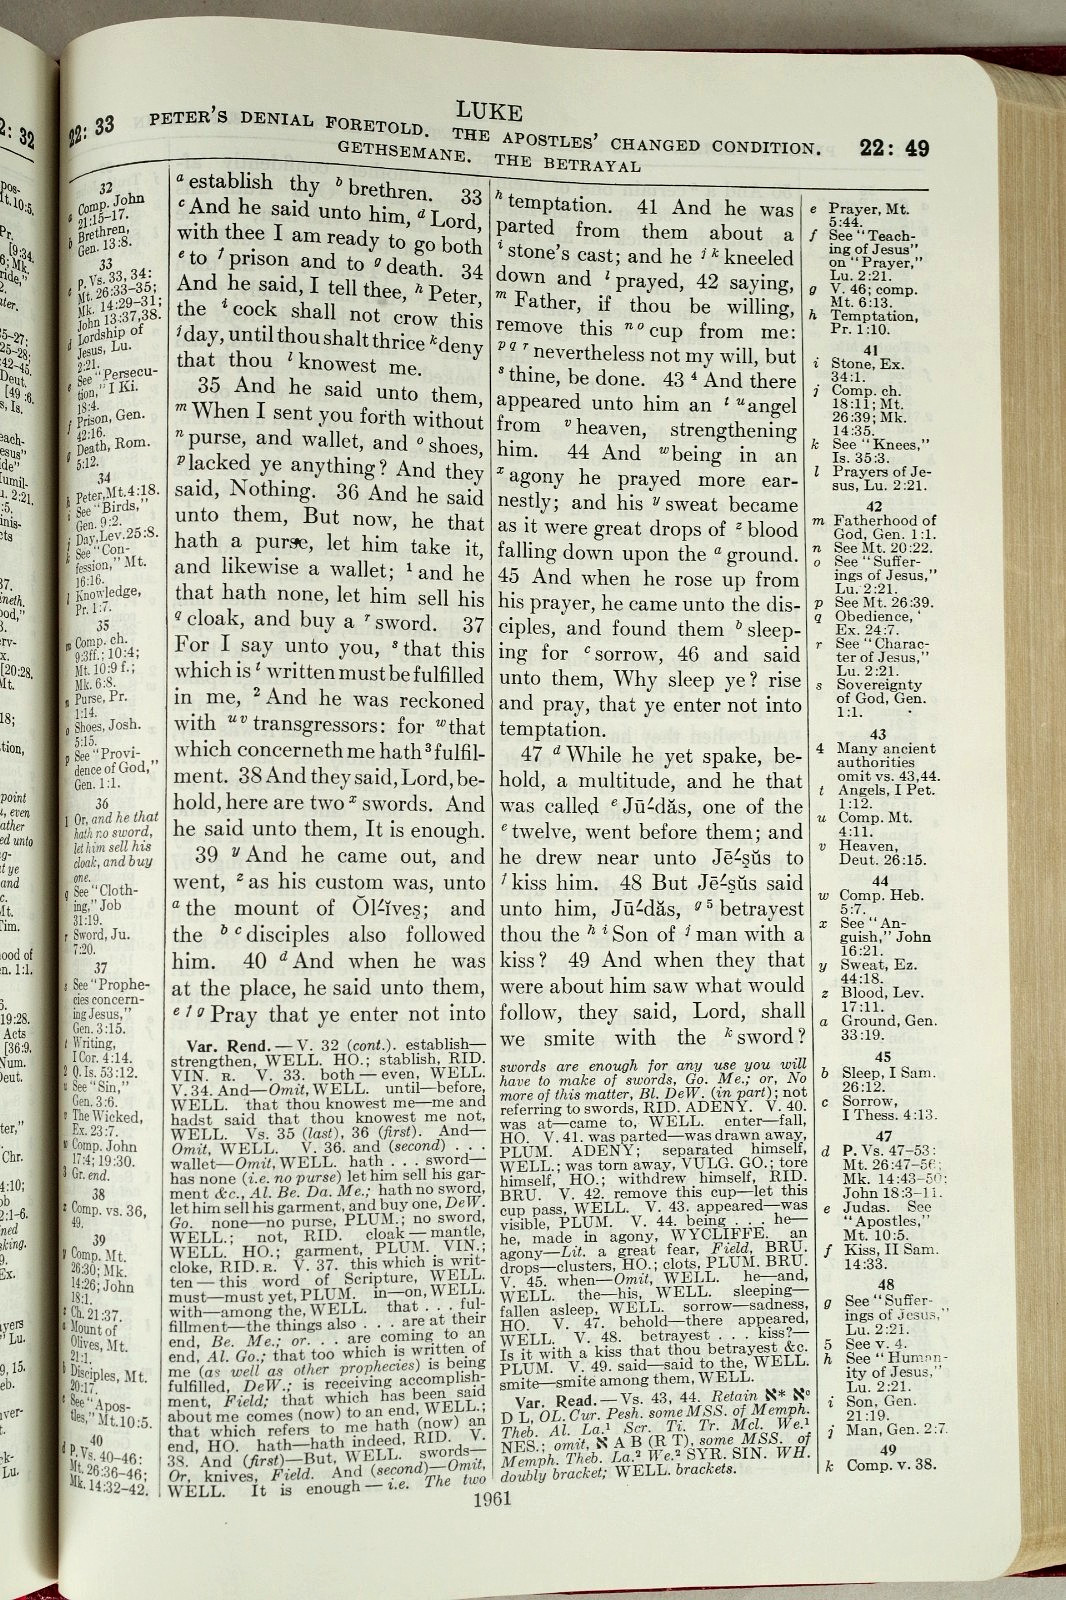 LUKE
22: 33 PETER'S DENIAL FORETOLD. THE APOSTLES' CHANGED CONDITION. 22: 49
GETHSEMANE. THE BETRAYAL
32
a Comp. John
21:15-17.
b Brethren,
Gen. 13:8.
33
c P. Vs. 33, 34:
Mt. 26:33-35;
Mk. 14:29-31;
John 13:37,38.
d Lordship of
Jesus, Lu.
2:21.
e See "Persecu-
tion," I Ki.
18:4.
f Prison, Gen.
42:16.
g Death, Rom.
5:12.
34
h Peter, Mt. 4:18.
i See "Birds,"
Gen. 9:2.
j Day, Lev. 25:8.
k See "Con-
fession," Mt.
16:16.
l Knowledge,
Pr. 1:7.
35
m Comp. ch.
9:3ff.; 10:4;
Mt. 10:9 f.;
Mk. 6:8.
n Purse, Pr.
1:14.
o Shoes, Josh.
5:15.
p See "Provi-
dence of God,"
Gen. 1:1.
36
1 Or, and he that
hath no sword,
let him sell his
cloak, and buy
one.
q See "Cloth-
ing," Job
31:19.
r Sword, Ju.
7:20.
37
s See "Prophe-
cies concern-
ing Jesus,"
Gen. 3:15.
t Writing,
I Cor. 4:14.
2 Q. Is. 53:12.
u See "Sin,"
Gen. 3:6.
v The Wicked,
Ex. 23:7.
w Comp. John
17:4; 19:30.
3 Gr. end.
38
x Comp. vs. 36,
49.
39
y Comp. Mt.
26:30; Mk.
14:26; John
18:1.
z Ch. 21:37.
a Mount of
Olives, Mt.
21:1.
b Disciples, Mt.
20:17.
c See "Apos-
tles," Mt. 10:5.
40
d P. Vs. 40-46:
Mt. 26:36-46;
Mk. 14:32-42.
a establish thy b brethren. 33
c And he said unto him, d Lord,
with thee I am ready to go both
e to f prison and to g death. 34
And he said, I tell thee, h Peter,
the i cock shall not crow this
j day, until thou shalt thrice k deny
that thou l knowest me.
35 And he said unto them,
m When I sent you forth without
n purse, and wallet, and o shoes,
p lacked ye anything? And they
said, Nothing. 36 And he said
unto them, But now, he that
hath a purse, let him take it,
and likewise a wallet; 1 and he
that hath none, let him sell his
q cloak, and buy a r sword. 37
For I say unto you, s that this
which is t written must be fulfilled
in me, 2 And he was reckoned
with u v transgressors: for w that
which concerneth me hath 3 fulfil-
ment. 38 And they said, Lord, be-
hold, here are two x swords. And
he said unto them, It is enough.
39 y And he came out, and
went, z as his custom was, unto
a the mount of Ŏl´ĭveş; and
the b c disciples also followed
him. 40 d And when he was
at the place, he said unto them,
e f g Pray that ye enter not into
Var. Rend.—V. 32 (cont.). establish—
strengthen, WELL. HO.; stablish, RID.
VIN. R. V. 33. both—even, WELL.
V. 34. And—Omit, WELL. until—before,
WELL. that thou knowest me—me and
hadst said that thou knowest me not,
WELL. Vs. 35 (last), 36 (first). And—
Omit, WELL. V. 36. and (second) . . .
wallet—Omit, WELL. hath . . . sword—
has none (i.e. no purse) let him sell his gar-
ment &c., Al. Be. Da. Me.; hath no sword,
let him sell his garment, and buy one, DeW.
Go. none—no purse, PLUM.; no sword,
WELL.; not, RID. cloak—mantle,
WELL. HO.; garment, PLUM. VIN.;
cloke, RID. R. V. 37. this which is writ-
ten—this word of Scripture, WELL.
must—must yet, PLUM. in—on, WELL.
with—among the, WELL. that . . . ful-
fillment—the things also . . . are at their
end, Be. Me.; or. . . are coming to an
end, Al. Go.; that too which is written of
me (as well as other prophecies) is being
fulfilled, DeW.; is receiving accomplish-
ment, Field; that which has been said
about me comes (now) to an end, WELL.;
that which refers to me hath (now) an
end, HO. hath—hath indeed, RID. V.
38. And (first)—But, WELL. swords—
Or, knives, Field. And (second)—Omit,
WELL. It is enough—i.e. The two
h temptation. 41 And he was
parted from them about a
i stone's cast; and he j k kneeled
down and l prayed, 42 saying,
m Father, if thou be willing,
remove this n o cup from me:
p q r nevertheless not my will, but
s thine, be done. 43 4 And there
appeared unto him an t u angel
from v heaven, strengthening
him. 44 And w being in an
x agony he prayed more ear-
nestly; and his y sweat became
as it were great drops of z blood
falling down upon the a ground.
45 And when he rose up from
his prayer, he came unto the dis-
ciples, and found them b sleep-
ing for c sorrow, 46 and said
unto them, Why sleep ye? rise
and pray, that ye enter not into
temptation.
47 d While he yet spake, be-
hold, a multitude, and he that
was called e Jū´dăs, one of the
e twelve, went before them; and
he drew near unto Jē´şŭs to
f kiss him. 48 But Jē´şŭs said
unto him, Jū´dăs, g 5 betrayest
thou the h i Son of j man with a
kiss? 49 And when they that
were about him saw what would
follow, they said, Lord, shall
we smite with the k sword?
swords are enough for any use you will
have to make of swords, Go. Me.; or, No
more of this matter, Bl. DeW. (in part); not
referring to swords, RID. ADENY. V. 40.
was at—came to, WELL. enter—fall,
HO. V. 41. was parted—was drawn away,
PLUM. ADENY; separated himself,
WELL.; was torn away, VULG. GO.; tore
himself, HO.; withdrew himself, RID.
BRU. V. 42. remove this cup—let this
cup pass, WELL. V. 43. appeared—was
visible, PLUM. V. 44. being . . . he—
he, made in agony, WYCLIFFE. an
agony—Lit. a great fear, Field, BRU.
drops—clusters, HO.; clots, PLUM. BRU.
V. 45. when—Omit, WELL. he—and,
WELL. the—his, WELL. sleeping—
fallen asleep, WELL. sorrow—sadness,
HO. V. 47. behold—there appeared,
WELL. V. 48. betrayest . . . kiss?—
Is it with a kiss that thou betrayest &c.
PLUM. V. 49. said—said to the, WELL.
smite—smite among them, WELL.
Var. Read.—Vs. 43, 44. Retain ℵ* ℵc
D L, OL. Cur. Pesh. some MSS. of Memph.
Theb. Al. La.1 Scr. Ti. Tr. Mcl. We.1
NES.; omit, ℵ A B (R T), some MSS. of
Memph. Theb. La.2 We.2 SYR. SIN. WH.
doubly bracket; WELL. brackets.
e Prayer, Mt.
5:44.
f See "Teach-
ing of Jesus"
on "Prayer,"
Lu. 2:21.
g V. 46; comp.
Mt. 6:13.
h Temptation,
Pr. 1:10.
41
i Stone, Ex.
34:1.
j Comp. ch.
18:11; Mt.
26:39; Mk.
14:35.
k See "Knees,"
Is. 35:3.
l Prayers of Je-
sus, Lu. 2:21.
42
m Fatherhood of
God, Gen. 1:1.
n See Mt. 20:22.
o See "Suffer-
ings of Jesus,"
Lu. 2:21.
p See Mt. 26:39.
q Obedience,
Ex. 24:7.
r See "Charac-
ter of Jesus,"
Lu. 2:21.
s Sovereignty
of God, Gen.
1:1.
43
4 Many ancient
authorities
omit vs. 43,44.
t Angels, I Pet.
1:12.
u Comp. Mt.
4:11.
v Heaven,
Deut. 26:15.
44
w Comp. Heb.
5:7.
x See "An-
guish," John
16:21.
y Sweat, Ez.
44:18.
z Blood, Lev.
17:11.
a Ground, Gen.
33:19.
45
b Sleep, I Sam.
26:12.
c Sorrow,
I Thess. 4:13.
47
d P. Vs. 47-53:
Mt. 26:47-56;
Mk. 14:43-50;
John 18:3-11.
e Judas. See
"Apostles,"
Mt. 10:5.
f Kiss, II Sam.
14:33.
48
g See "Suffer-
ings of Jesus,"
Lu. 2:21.
5 See v. 4.
h See "Human-
ity of Jesus,"
Lu. 2:21.
i Son, Gen.
21:19.
j Man, Gen. 2:7.
49
k Comp. v. 38.
1961